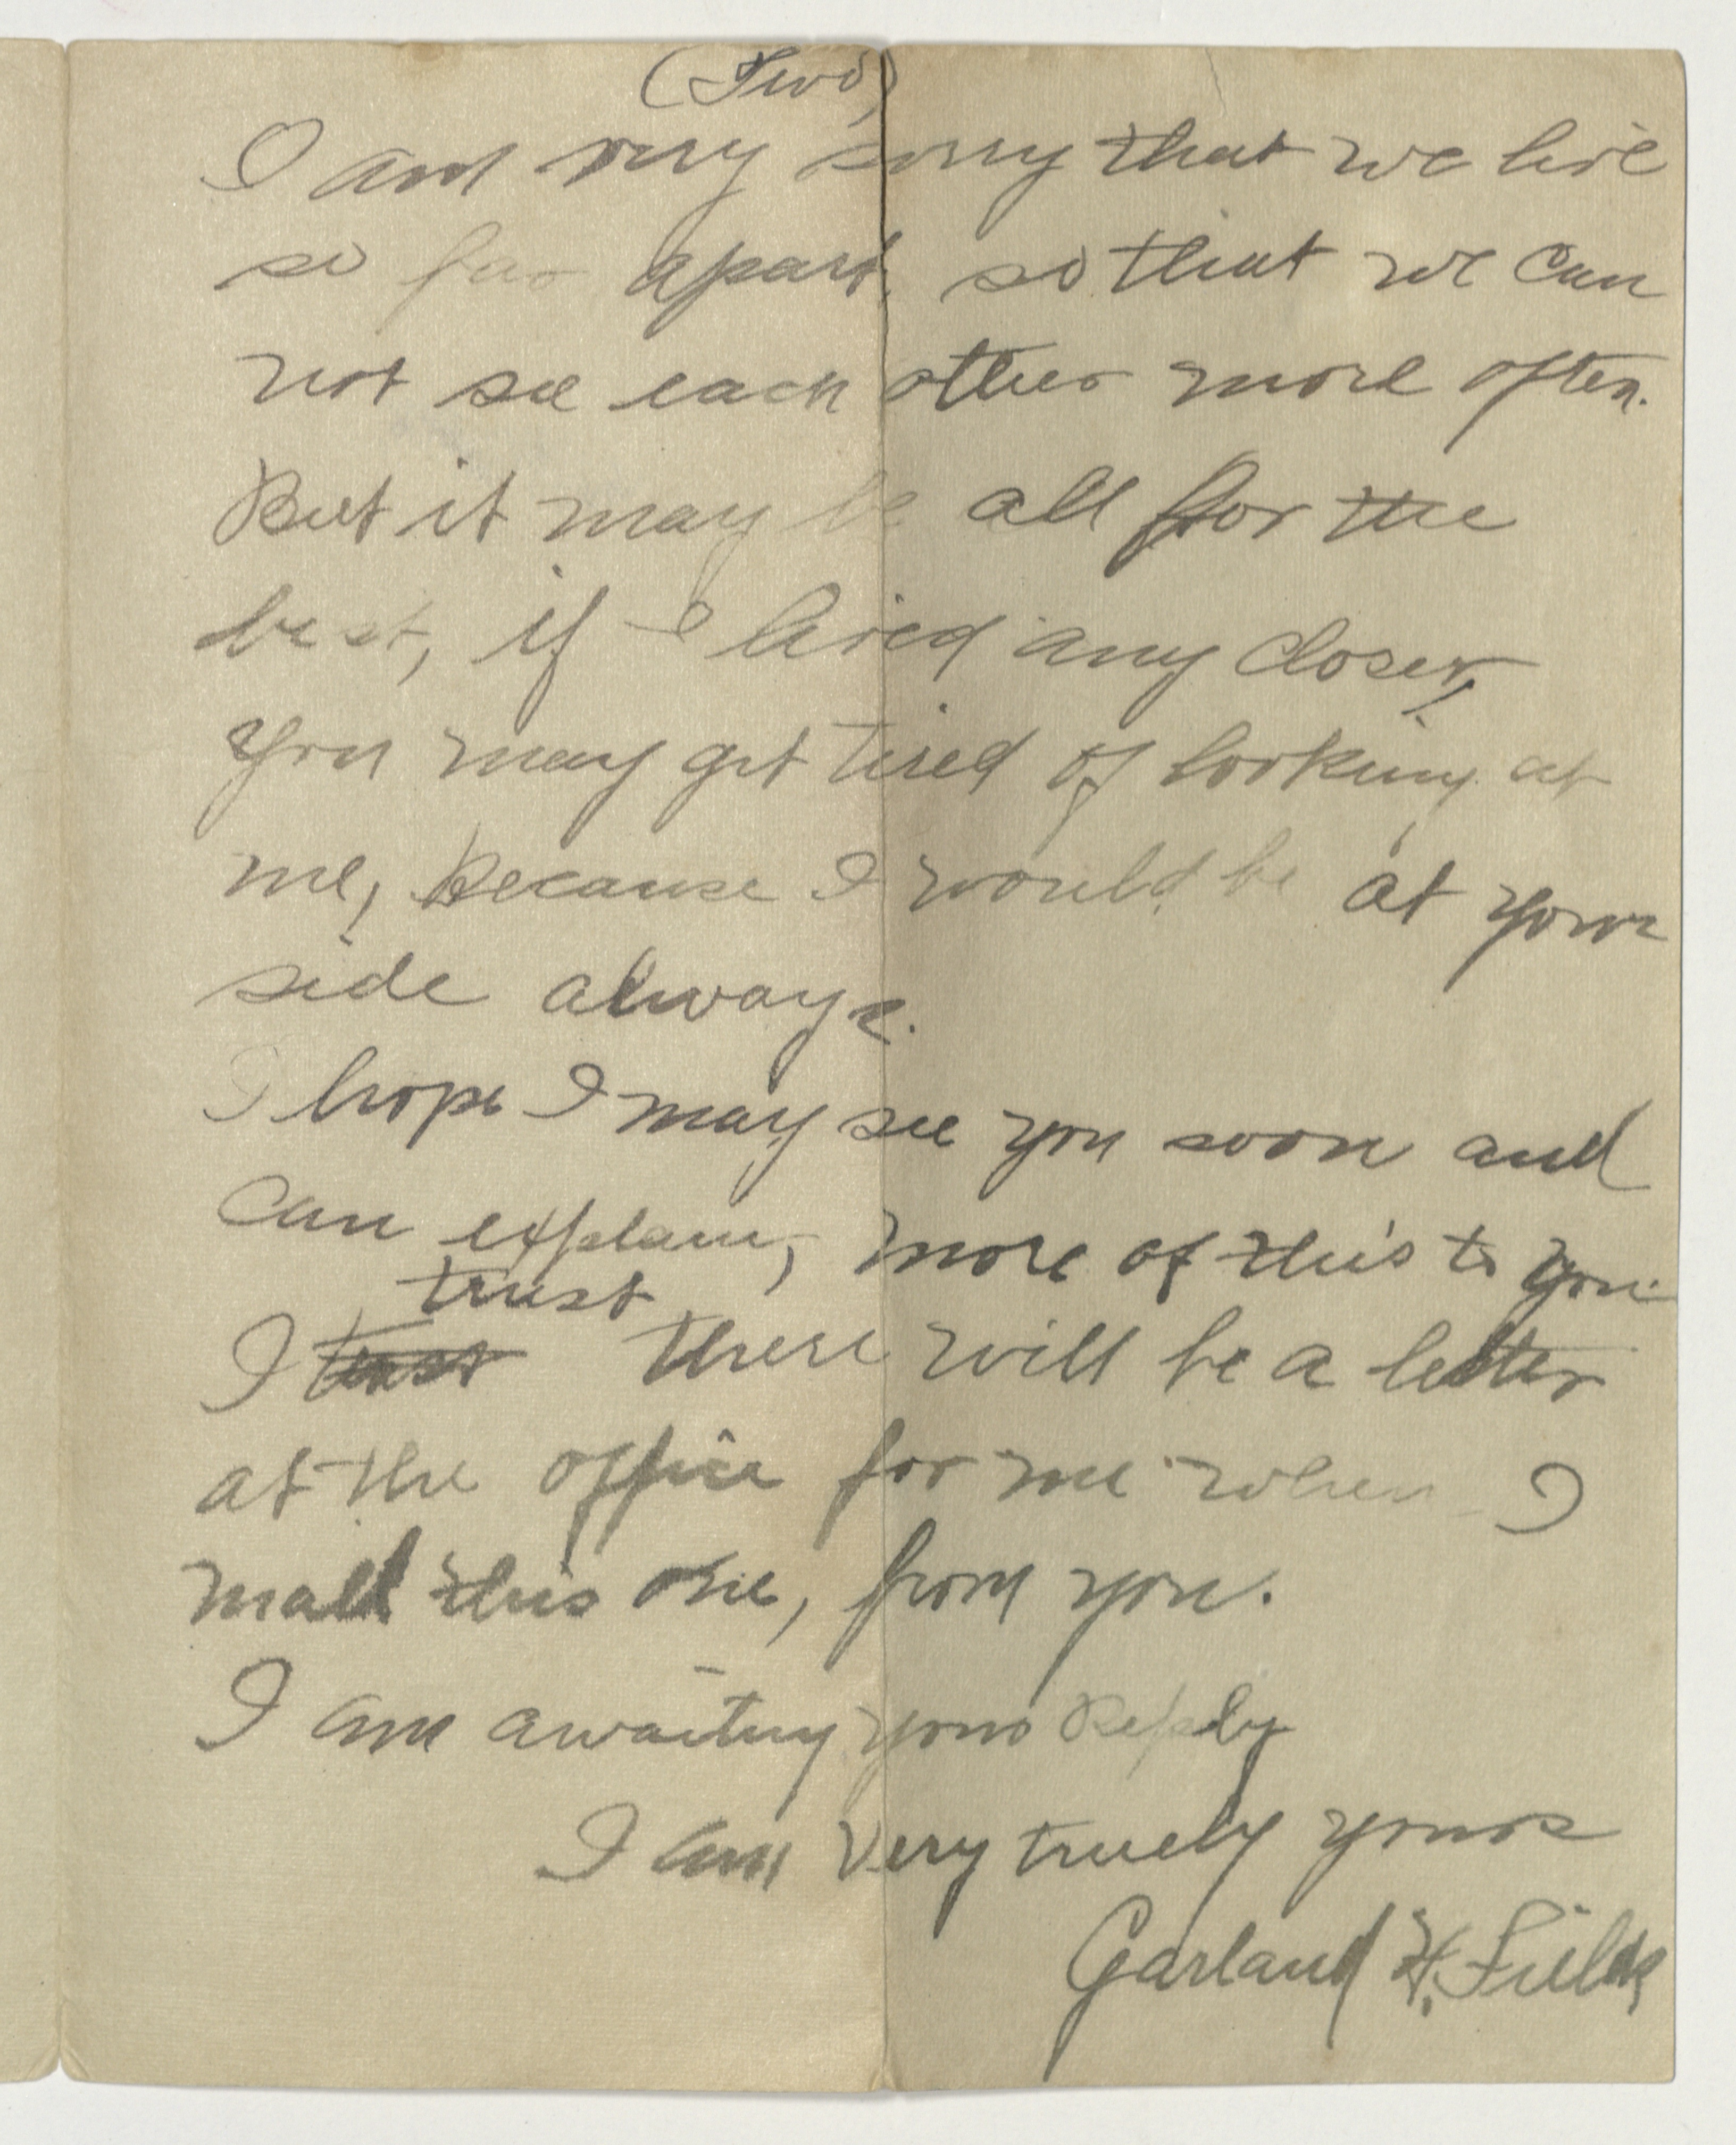 (Two)
I am very sorry that we live
so far apart, so that we can
not see each other more often.
But it may be all for the
best, if I lived any closer,
you may get tired of looking at
me, Because I would be at your
side always.
I hope I may see you soon and
can explain, more of this to you.
trust
I trust there will be a letter
at the office for me when I
mail this one, from you.
I am awaiting your Reply
I am Very truely yours
Garland H. Fields